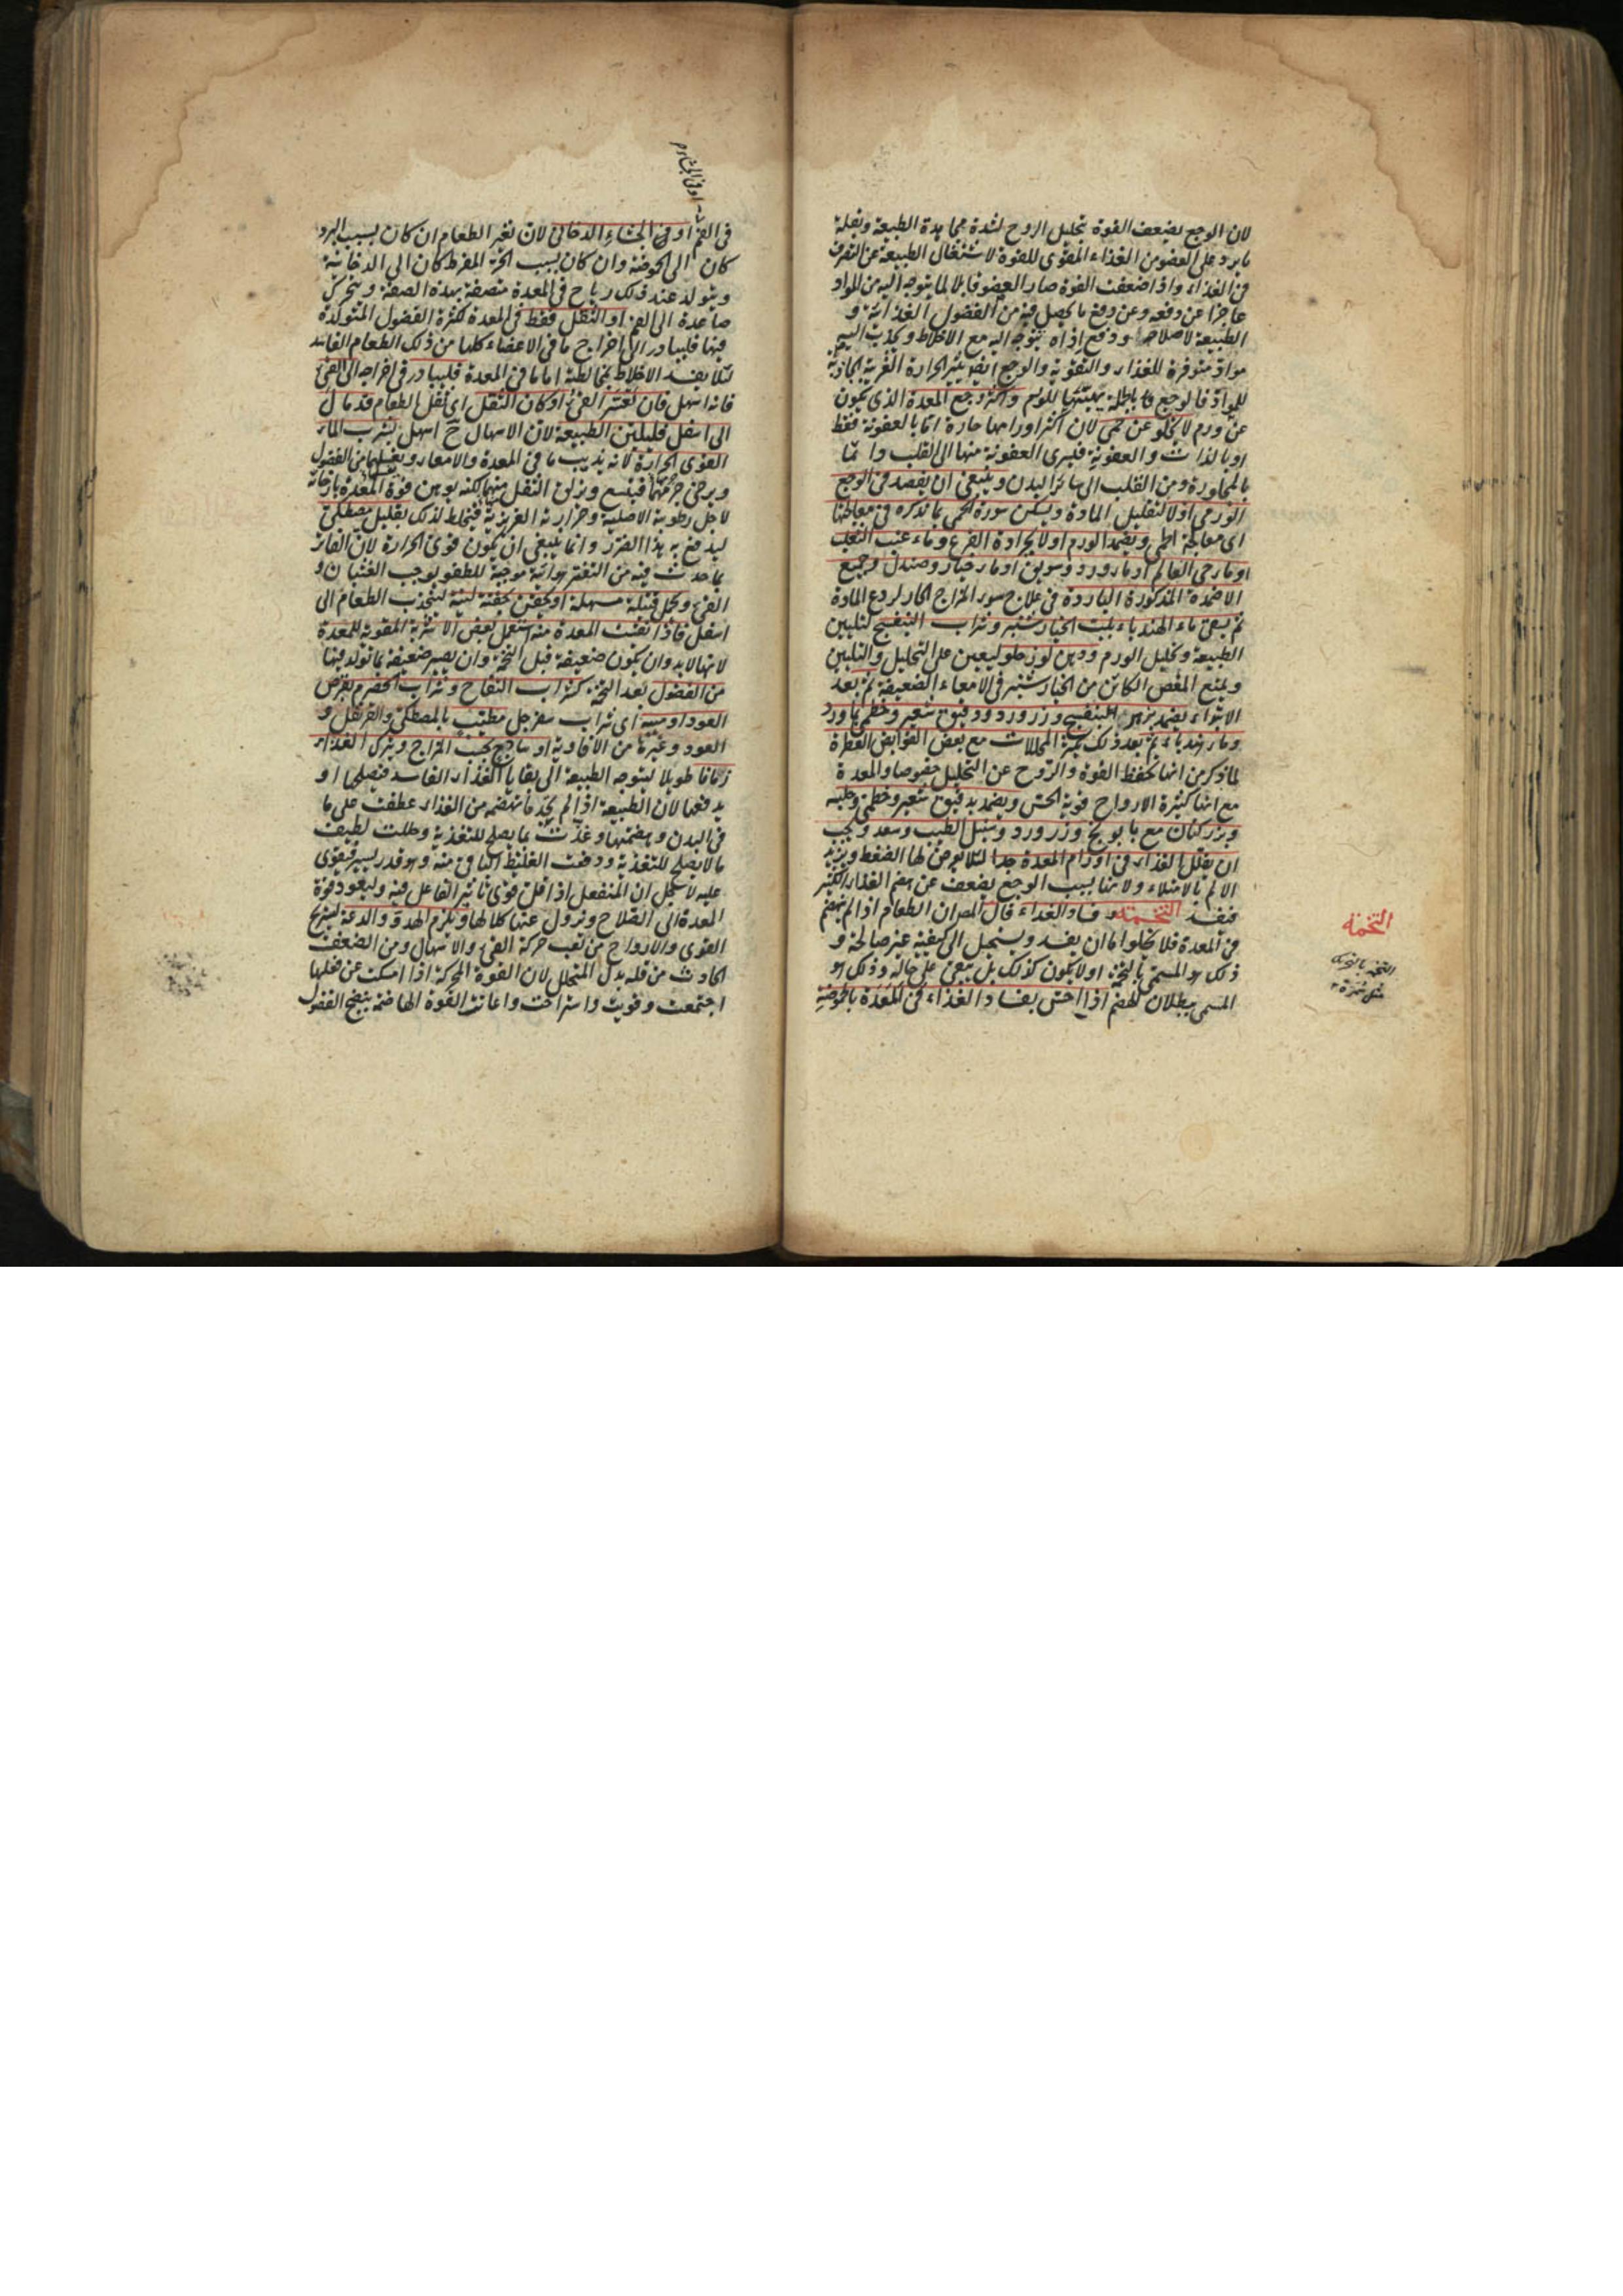 لان الوجع يضعف القوة بتحليل الروح لشدة مجاهدة الطبيعة وبقلة
ما يرد على العضو من الغذاء المقوى للقوة لاشتغال الطبيعة عن التصرف
فى الغذاء واذا ضعفت القوة صار العضو قابلا لما يتوجه اليه من المواد
عاجزا عن دفعه وعن دفع ما يحصل فيه من الفضول الغذائية و
الطبيعة لاصلاحه ودفع اذاه يتوجه اليه مع الاخلاط ويجذب اليه
مواد متوفرة للغذاء والتقوية والوجع ايضا يثير الحرارة الغريبة الجاذبة
للمواد فالوجع يهيئها للورم واكثر وجع المعدة الذى يكون
عن ورم لا يخلو عن حمى لان اكثر اورامها حارة اما بالعفونة فقط
او بالذات والعفونة فيسرى العفونة منها الى القلب دائما
بالمجاورة ومن القلب الى سائر البدن وينبغى ان يفصد فى الوجع
الورمى اولا لتقليل المادة ويسكن سورة الحمى بما نذكره فى معالجتها
اى معالجة الحمى ويضمد الورم اولا بجرادة القرع وماء عنب الثعلب
او ماء حى العالم او ماء ورد وسويق او ماء خيار وصندل وجميع
الاضمدة المذكورة الباردة فى علاج سوء المزاج الحار لردع المادة
ثم يسقى ماء الهندباء بلب الخيارشنبر وشراب البنفسج لتليين
الطبيعة وتحليل الورم ودهن لوز حلو ليعين على التحليل والتليين
ويمنع المغص الكائن من الخيارشنبر فى الامعاء الضعيفة ثم بعد
الابتداء يضمد بزهر البنفسج وزر ورد ودقيق شعير وخطمى بماورد
وماء هندباء ثم بعد ذلك بكثرة المحللات مع بعض القوابض العطرة
لما ذكر من انها تحفظ القوة والروح عن التحليل خصوصا والمعدة
مع انها كثيرة الارواح قوية الحس ويضمد بدقيق شعير وخطمى وحلبه
وبزر كتان مع بابونج وزر ورد وسنبل الطيب وسعد ويجب
ان يقلل الغذاء فى اورام المعدة جدا لئلا يعرض لها الضغط ويزيد
الالم بالامتلاء ولانها بسبب الوجع يضعف عن هضم الغذاء الكثير
فيفسد التخمة وفساد الغذاء قال المص ان الطعام اذا لم ينهضم
فى المعدة فلا يخلو اما ان يفسد ويستحيل الى كيفية غير صالحة و
ذلك هو المسمى بالتخمة او لا يكون كذلك بل يبقى على حاله وذلك هو
المسمى ببطلان الهضم اذا احس بفساد الغذاء فى المعدة بالحموضة
التخمة
او فى الجشاء م
فى الفم او فى الجشاء الدخانى لان تغير الطعام ان كان بسبب البرد
كان الى الحموضة وان كان بسبب الحر المفرط كان الى الدخانية
ويتولد عند ذلك رياح فى المعدة متصفة بهذه الصفة ويتحرك
صاعدة الى الفم او الثقل فقط فى المعدة لكثرة الفضول المتولدة
فيها فليبادر الى اخراج ما فى الاعضاء كلها من ذلك الطعام الفاسد
لئلا يفسد الاخلاط بمخالطته اما ما فى المعدة فليبادر فى اخراجه الى القئ
فانه اسهل فان تعسر القئ او كان الثقل اى ثقل الطعام قد مال
الى اسفل فليلين الطبيعة لان الاسهال ح اسهل بشرب الماء
القوى الحرارة لانه يذيب ما فى المعدة والامعاء ويغسلها من الفضول
ويرخى جرمها فيتسع ويزلق الثقل منها لكنه يوهن قوة المعدة بارخائه
لاجل رطوبته الاصلية وحرارته الغريزية فيخلط لذلك بقليل مصطكى
ليدفع به هذا الضرر وانما ينبغى ان يكون قوى الحرارة لان الفاتر
بما حدث فيه من التفتر هوائية موجبة للطفو يوجب الغثيان و
القئ وتحمل فتيلة مسهلة او يحقن بحقنة لينة لينجذب الطعام الى
اسفل فاذا نقيت المعدة منه استعمل بعض الاشربة المقوية للمعدة
لانها لا بد وان يكون ضعيفة قبل التخمة وان يصير ضعيفة بما تولد فيها
من الفضول بعد التخمة كشراب التفاح وشراب الحصرم بقرص
العود او ميبه اى شراب سفرجل مطيب بالمصطكى والقرنفل و
العود وغيرها من الافاويه او ساذج بحسب المزاج ويترك الغذاء
زمانا طويلا ليتوجه الطبيعة الى بقايا الغذاء الفاسد فيصلحها او
يدفعها لان الطبيعة اذا لم تجد ما تهضمه من الغذاء عطفت على ما
فى البدن وهضمتها وغذت بما يصلح للتغذية وحللت لطيف
ما لا يصلح للتغذية ودفعت الغليظ الباقى منه وهو قدر يسير فيقوى
عليه لا محالة ان المنفعل اذا قل قوى تاثير الفاعل فيه وليعود قوة
المعدة الى الصلاح ويزول عنها كلالها ويلزم الهدو والدعة ليستريح
القوى والارواح من تعب حركة القئ والاسهال ومن الضعف
الحادث من قلة بدل المتحلل لان القوة المحركة اذا امسكت عن فعلها
اجتمعت وقويت واستراحت واعانت القوة الهاضمة بنضج الفضول